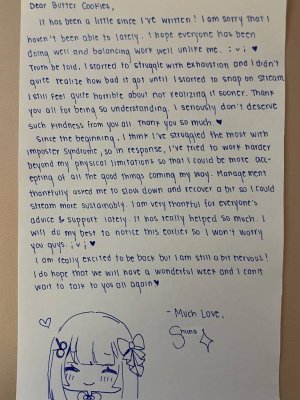 Dear Butter Cookies,
It has been a little since I've written! I am sorry that I
haven't been able to lately. I hope everyone has been
doing well and balancing work well unlike me. : v ; ♥
Truth be told, I started to struggle with exhaustion and I didn't
quite realize how bad it got until I started to snap on stream.
I still feel quite horrible about not realizing it sooner. Thank
you all for being so understanding. I seriously don't deserve
such kindness from you all. Thank you so much. ♥
Since the beginning, I think I've struggled the most with
imposter syndrome, so in response, I've tried to work harder
beyond my physical limitations so that I could be more acc-
epting of all the good things coming my way. Management
thankfully asked me to slow down and recover a bit so I could
stream more sustainably. I am very thankful for everyone's
advice & support lately. It has really helped so much. I
will do my best to notice this earlier so I won't worry
you guys. ; v ; ♥
I am really excited to be back but I am still a bit nervous!
I do hope that we will have a wonderful week and I can't
wait to talk to you all again ♥
- Much Love,